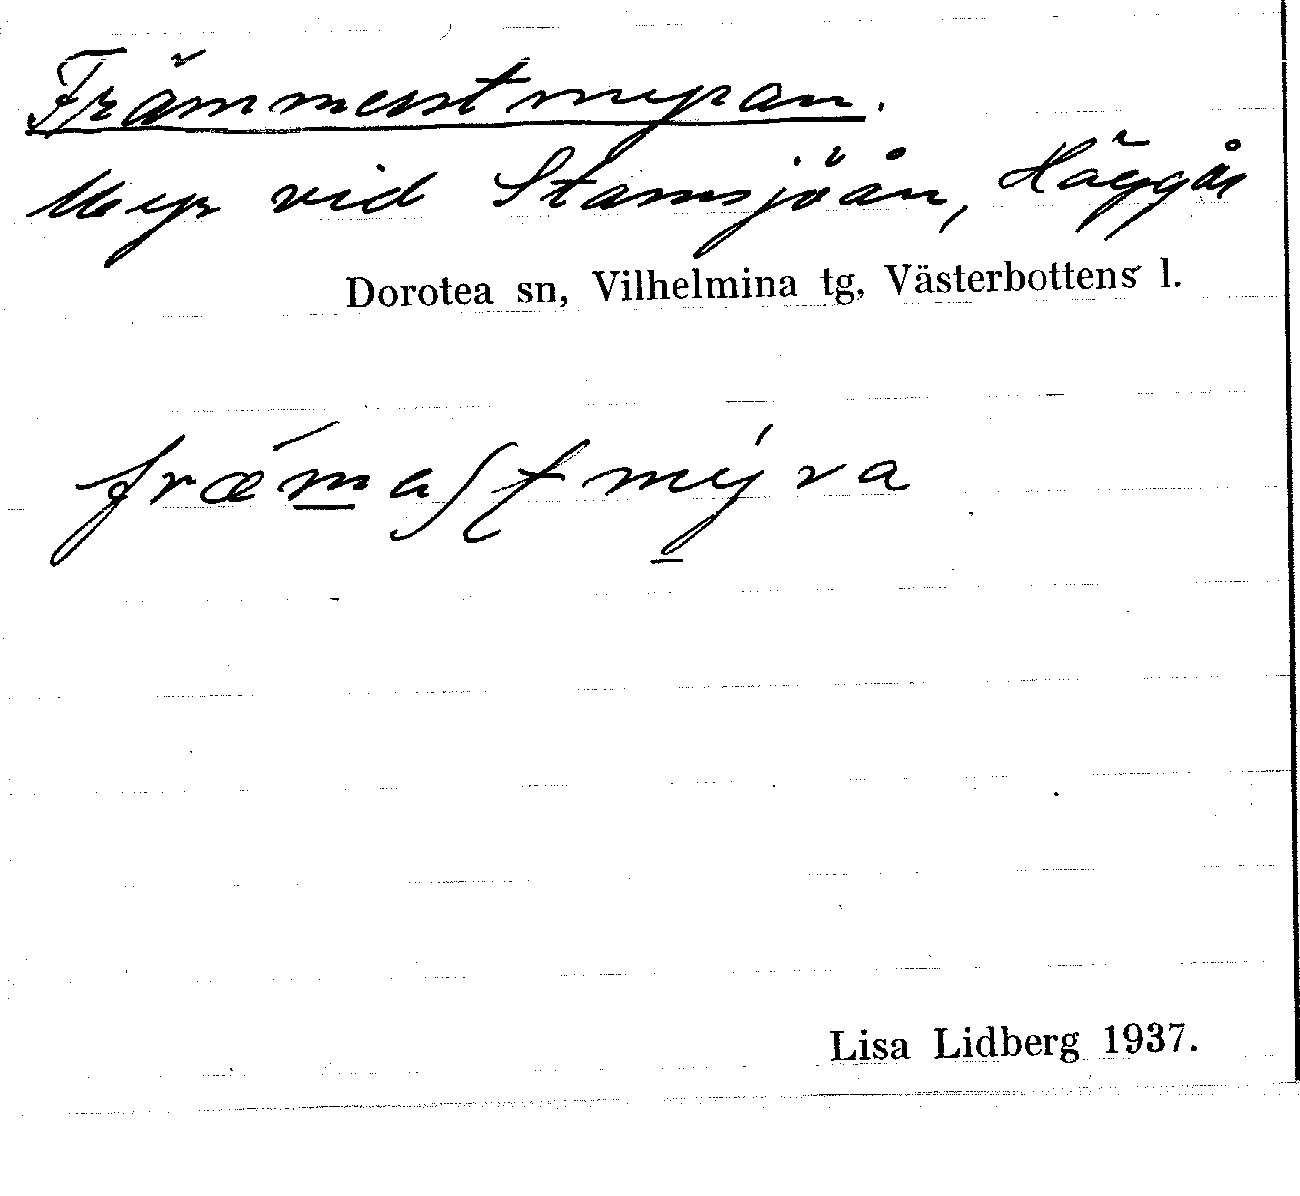 Främmerstmyran.
Myr vid Stamsjöån, Häggås
Dorotea sn, Vilhelmina tg, Västerbottens l.
fræ´m̲aſt mý̲ra
Lisa Lidberg 1937.